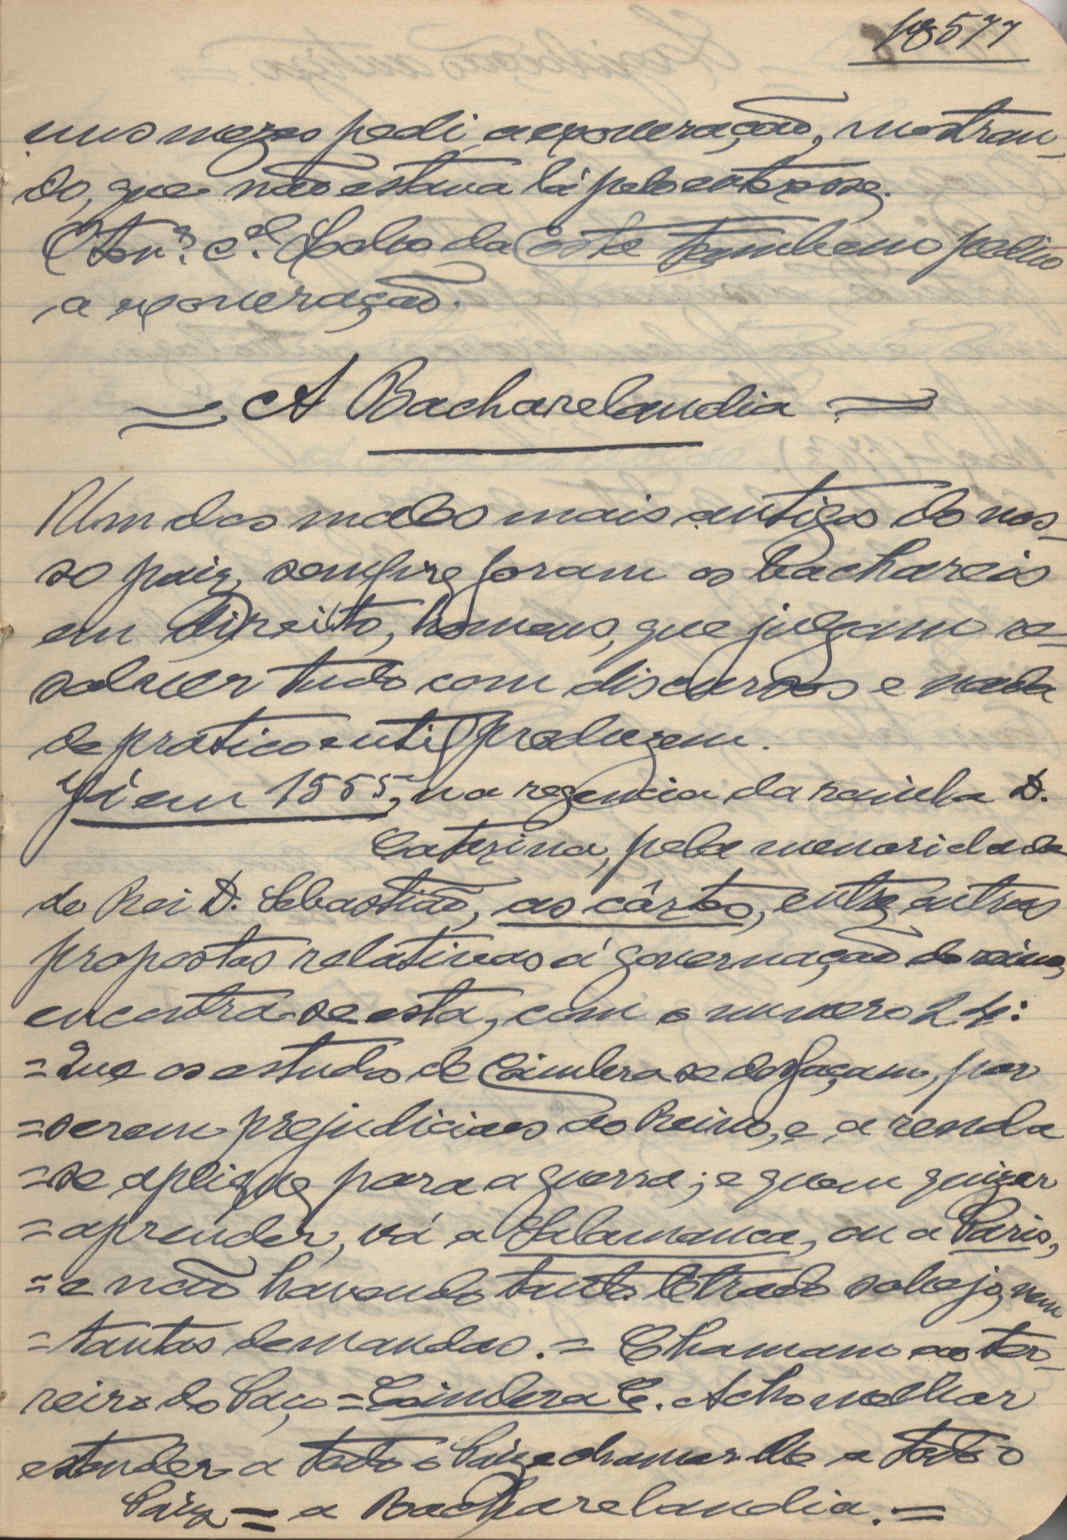 577
uns mezes pedi a exoneração, mostran-
do, que não estava lá pelo interesse.
O Ten.e C.el Lobo da Costa tambem pediu
a exoneração.
= A Bacharelandia =
Um dos males mais antigos do nos-
so paiz, sempre foram os bachareis
em Direito, homens, que julgam re-
solver tudo com discursos e nada
de pratico e util produzem.
Já em 1555, na regencia da rainha D.
Caterina, pela menoridade
do Rei D. Sebastião, as côrtes, entre outras
propostas relativas á governação do reino,
encontra-se esta, com o numero 24:
= Que os estudos de Coimbra se desfaçam, por
= serem prejudiciaes ao Reino, e a renda
= se aplique para a guerra; e quem quizer
= aprender, vá a Salamanca, ou a Paris,
= e não havendo tanto letrado sobejo, nem
= tantas demandas. = Chamam ao ter-
reiro do Paço = Coimbra C. Acho melhor
estender a todo o Paiz e chamar-lhe a todo o
Paiz = a Bacharelandia. =